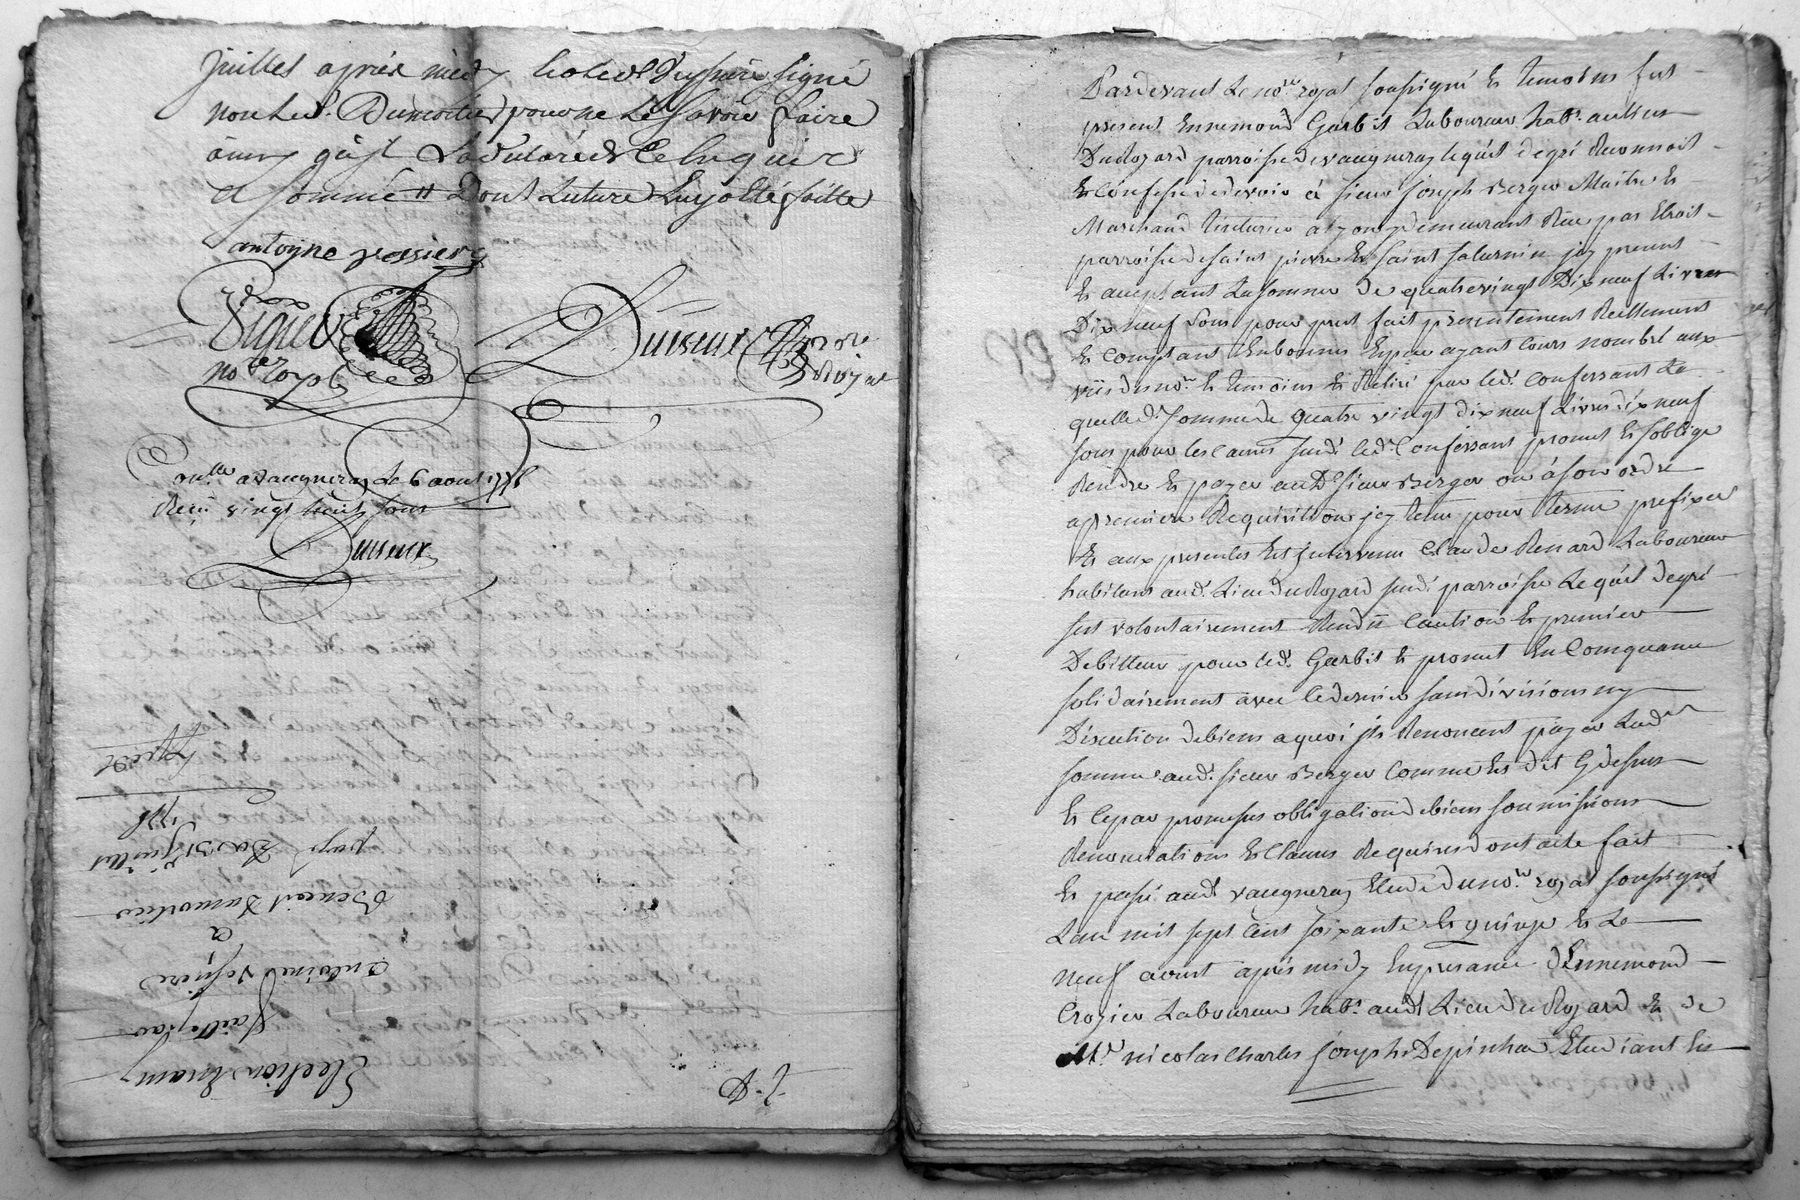 juillet après midy led. Vessière signé
non led. Dumortier pour ne le savoir faire
ainsy qu'jl l'a declaré de ce enquis
et sommé dont lecture luy a été faitte
antoyne vessiere
Vigne
no.re royal
Duiseux
Con.lle a vaugneray le 6 aoust
Receü vingt huit sous
Duiseux
Election d'amy
faitte par
antoine Vessiere
a
Benoit Dumortier
passé Le 31 juillet
1775
Exped.
Pardevant Le no.re royal soussigné Et temoins fut
present Ennemond Garbit Laboureur hab.t au lieu
Du Rozard parroisse de vaugneray lequel de gré Reconnoit
Et Confesse de devoir à sieur joseph Berger Maitre Et
Marchand tinturier a Lyon y demeurant Rue pas Etroit
parroisse de saint pierre Et saint saturnin jcy present
Et acceptant La somme de quatrevingt Dix neuf Livres
Dix neuf sous pour pret fait presentement Reellement
Et Comptant En bonnes Especes ayant cours nombré aux
vües du no.re Et temoins Et Retiré par led. Confessant La
quelle d. somme de quatre vingt dix neuf Livres dix neuf
sous pour les causes susd. led. Confessant promet Et s'oblige
Rendre Et payer aud. sieur Berger ou à son ordre
a premiere Requisition jcy tenu pour terme prefixe
Et aux presentes Est jntervenu Claude Renard Laboureur
habitant aud. Lieu du Rozard susd. parroisse Lequel de gré
s'est volontairement Rendü Caution Et premier
Debitteur pour led. Garbit Et promet En Comquance
solidairement avec ce dernier sans division ny
Discution de biens a quoi jls Renoncent payer Lad.
somme aud. sieur Berger Comme Est dit Cy dessus
Et Ce par promesses obligation de biens soumissions
Renonciations Et Clauses Requises dont acte fait
Et passé aud. vaugneray Etude du no.re royal soussigné
L'an mil sept Cent soixante Et quinze Et Le
neuf aoust après midy En presance d'Ennemond
Crozier Laboureur hab.t aud. Lieu du Rozard Et de
M.r nicolas Charles joseph Depinhac Etudiant Es